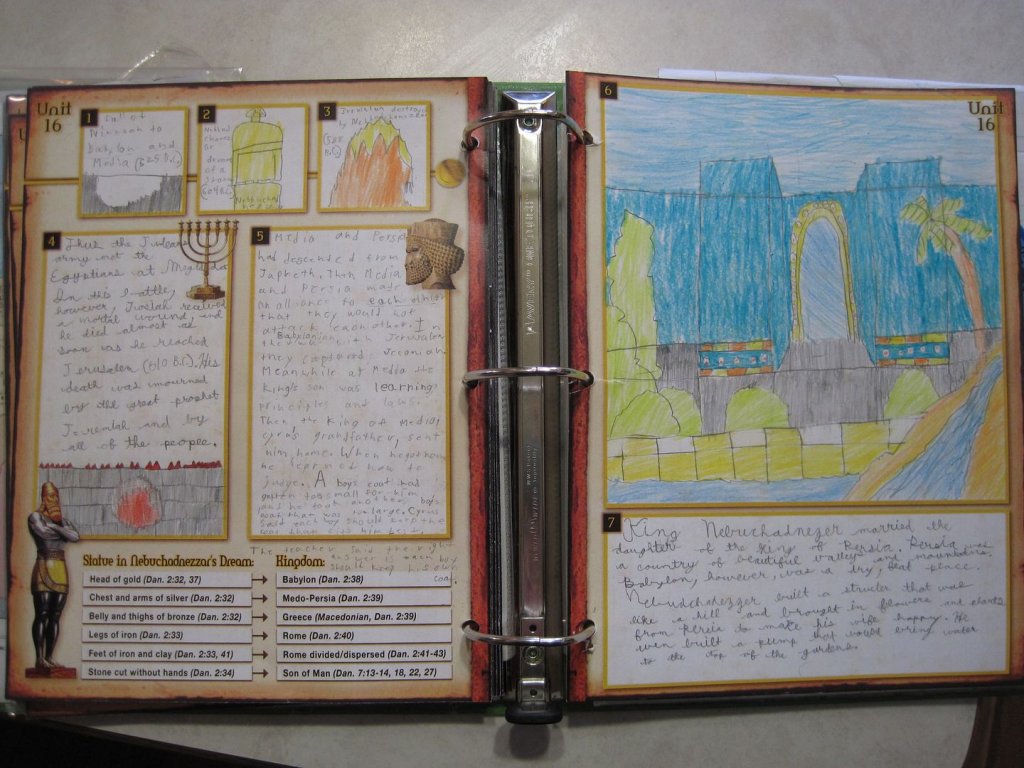 Unit
16
1
Fall of
Ninevah to
Babylon and
Media (625 B.C.)
2
of a
3
Jerusalem destroyed
by Nebuchadnezzar
4
Thus the
army met the
Egyptians at Megiddo
In his battle,
however, Josiah received
a mortal wound, and
he died almost as
soon as he reached
Jerusalem (610 B.C.). His
death was mourned
by the great prophet
and by
all of the people.
5
Media and Persia
had descended from
Japheth. Then Media
and Persia made
an alliance to each other
that they would not
attack each other. In
Babylonian
with Jerusalem
they captured Jeconiah
Meanwhile at Media the
King's son was learning
principles and laws.
Then the King of Media,
Cyrus grandfather, sent
him home. When he got home
he learned how to
judge. A boys coat had
gotten too small for him
and he took another boys
coat that was too large. Cyrus
said each boy should keep the
coat that
The teacher said the right
answer was each boy
should keep his own
coat.
Statue in Nebuchadnezzar's Dream:
Kingdom:
Head of gold (Dan. 2:32, 37)
Babylon (Dan. 2:38)
Chest and arms of silver (Dan. 2:32)
Medo-Persia (Dan. 2:39)
Belly and thighs of bronze (Dan. 2:32)
Greece (Macedonian, Dan. 2:39)
Legs of iron (Dan. 2:33)
Rome (Dan. 2:40)
Feet of iron and clay (Dan. 2:33, 41)
Rome divided/dispersed (Dan. 2:41-43)
Stone cut without hands (Dan. 2:34)
Son of Man (Dan. 7:13-14, 18, 22, 27)
6
Unit
16
7
King Nebuchadnezer married the
daughter of the King of Persia. Persia was
a country of beautiful valleys and mountains.
Babylon, however, was a dry, flat place.
built a structer that was
like a hill and brought in flowers and plants
from Persia to make his wife happy. He
even built a pump that would bring water
to the top of the gardens.